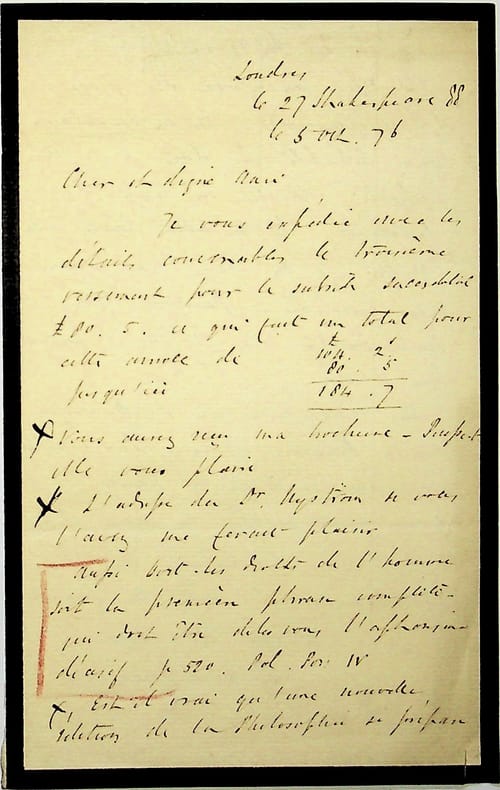 Londres
le 27 Shakespeare
le 5 Oct. 76
Cher et digne Ami
Je vous expédie avec les
détails convenables le troisième
versement pour le subside sacerdotal
£ 80. 5. ce qui fait un total pour
cette année de £ 104. 2 s
80. 5
jusqu'ici 184. 7
Vous aurez reçu ma brochure - Puisse t
elle vous plaire
L'adresse du Dr. Nyström si vous
l'avez me ferait plaisir
Aussi les droits de l'homme
soit la première phrase complète -
qui doit être l'aphorisme
décisif p 520. Pol. Pos. IV
Est il vrai qu'une nouvelle
édition de la Philosophie se prépare